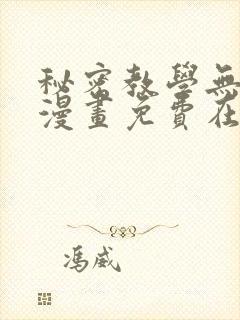 秘密教學無
漫畫免費在
馮威